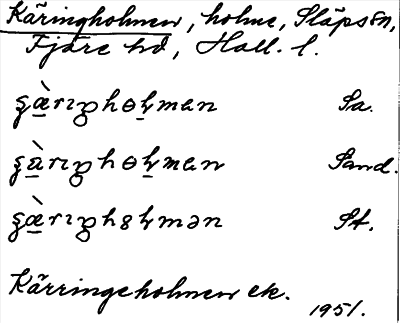 Käringholmen, holme, Släpssn,
Fjäre hd, Hall. l.
ʂæ̀rıŋhɵɫman Sa.
ʂàrıŋhɵɫman Sand.
ʂæ̀rıŋh8ɫmən St.
Kärringeholmen ek.
1951.